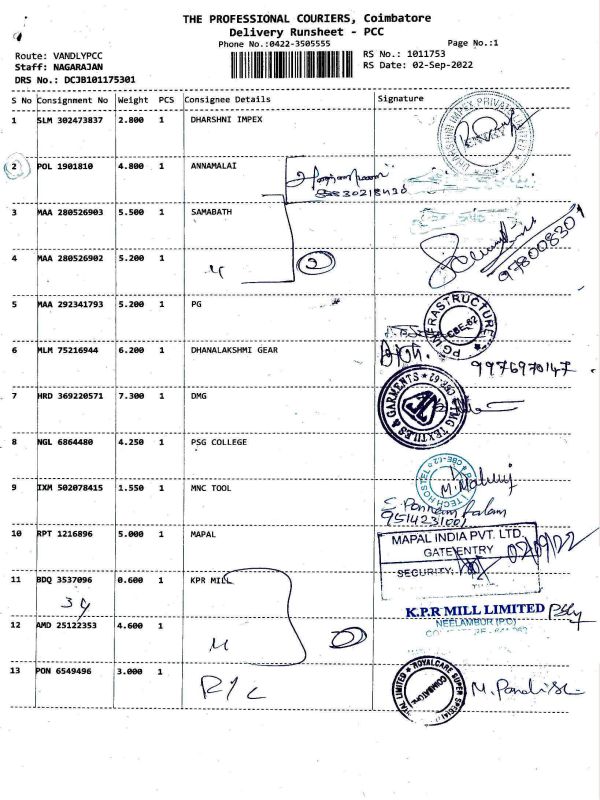 THE PROFESSIONAL COURIERS, Coimbatore
Delivery Runsheet - PCC
Phone No.:0422-3505555
Page No.:1
Route: VANDLYPCC
RS No.: 1011753
Staff: NAGARAJAN
RS Date: 02-Sep-2022
DRS No.: DCJB101175301
S No Consignment No Weight PCS Consignee Details Signature
1 SLM 302473837 2.800 1 DHARSHNI IMPEX
2 POL 1901810 4.800 1 ANNAMALAI
3 MAA 280526903 5.500 1 SAMABATH
4 MAA 280526902 5.200 1
2
9780008301
5 MAA 292341793 5.200 1 PG
PG INFRASTRUCTURE CBE-62
6 MLM 75216944 6.200 1 DHANALAKSHMI GEAR
9976970147
7 HRD 369220571 7.300 1 DMG
TMG TEXTILES & GARMENTS CBE-62
8 NGL 6864480 4.250 1 PSG COLLEGE
9 IXM 502078415 1.550 1 MNC TOOL
9514231001
10 RPT 1216896 5.000 1 MAPAL
MAPAL INDIA PVT. LTD
GATE ENTRY 02/09/22
SECURITY:
11 BDQ 3537096 0.600 1 KPR MILL
K.P.R MILL LIMITED
NEELAMBUR (P.O)
12 AMD 25122353 4.600 1
13 PON 6549496 3.000 1
R/C
ROYALCARE SUPER SPECIALITY HOSPITAL LIMITED COIMBATORE